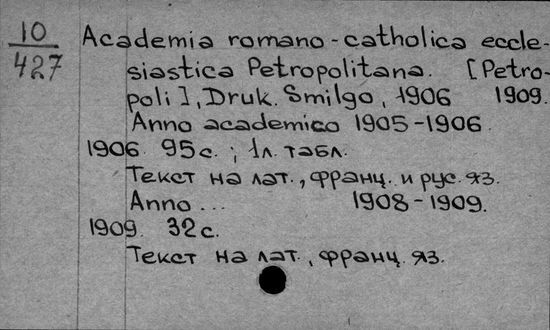 10
427
Academia romano-catholica eccle-
siastica Petropolitana. [Petro-
poli], Druk. Smilgo, 1906 1909.
Anno academico 1905-1906.
1906. 95с.; 1л. табл.
Текст на лат., франц. и рус. яз.
Anno ... 1908-1909.
1909. 32с.
Текст на лат., франц. яз.